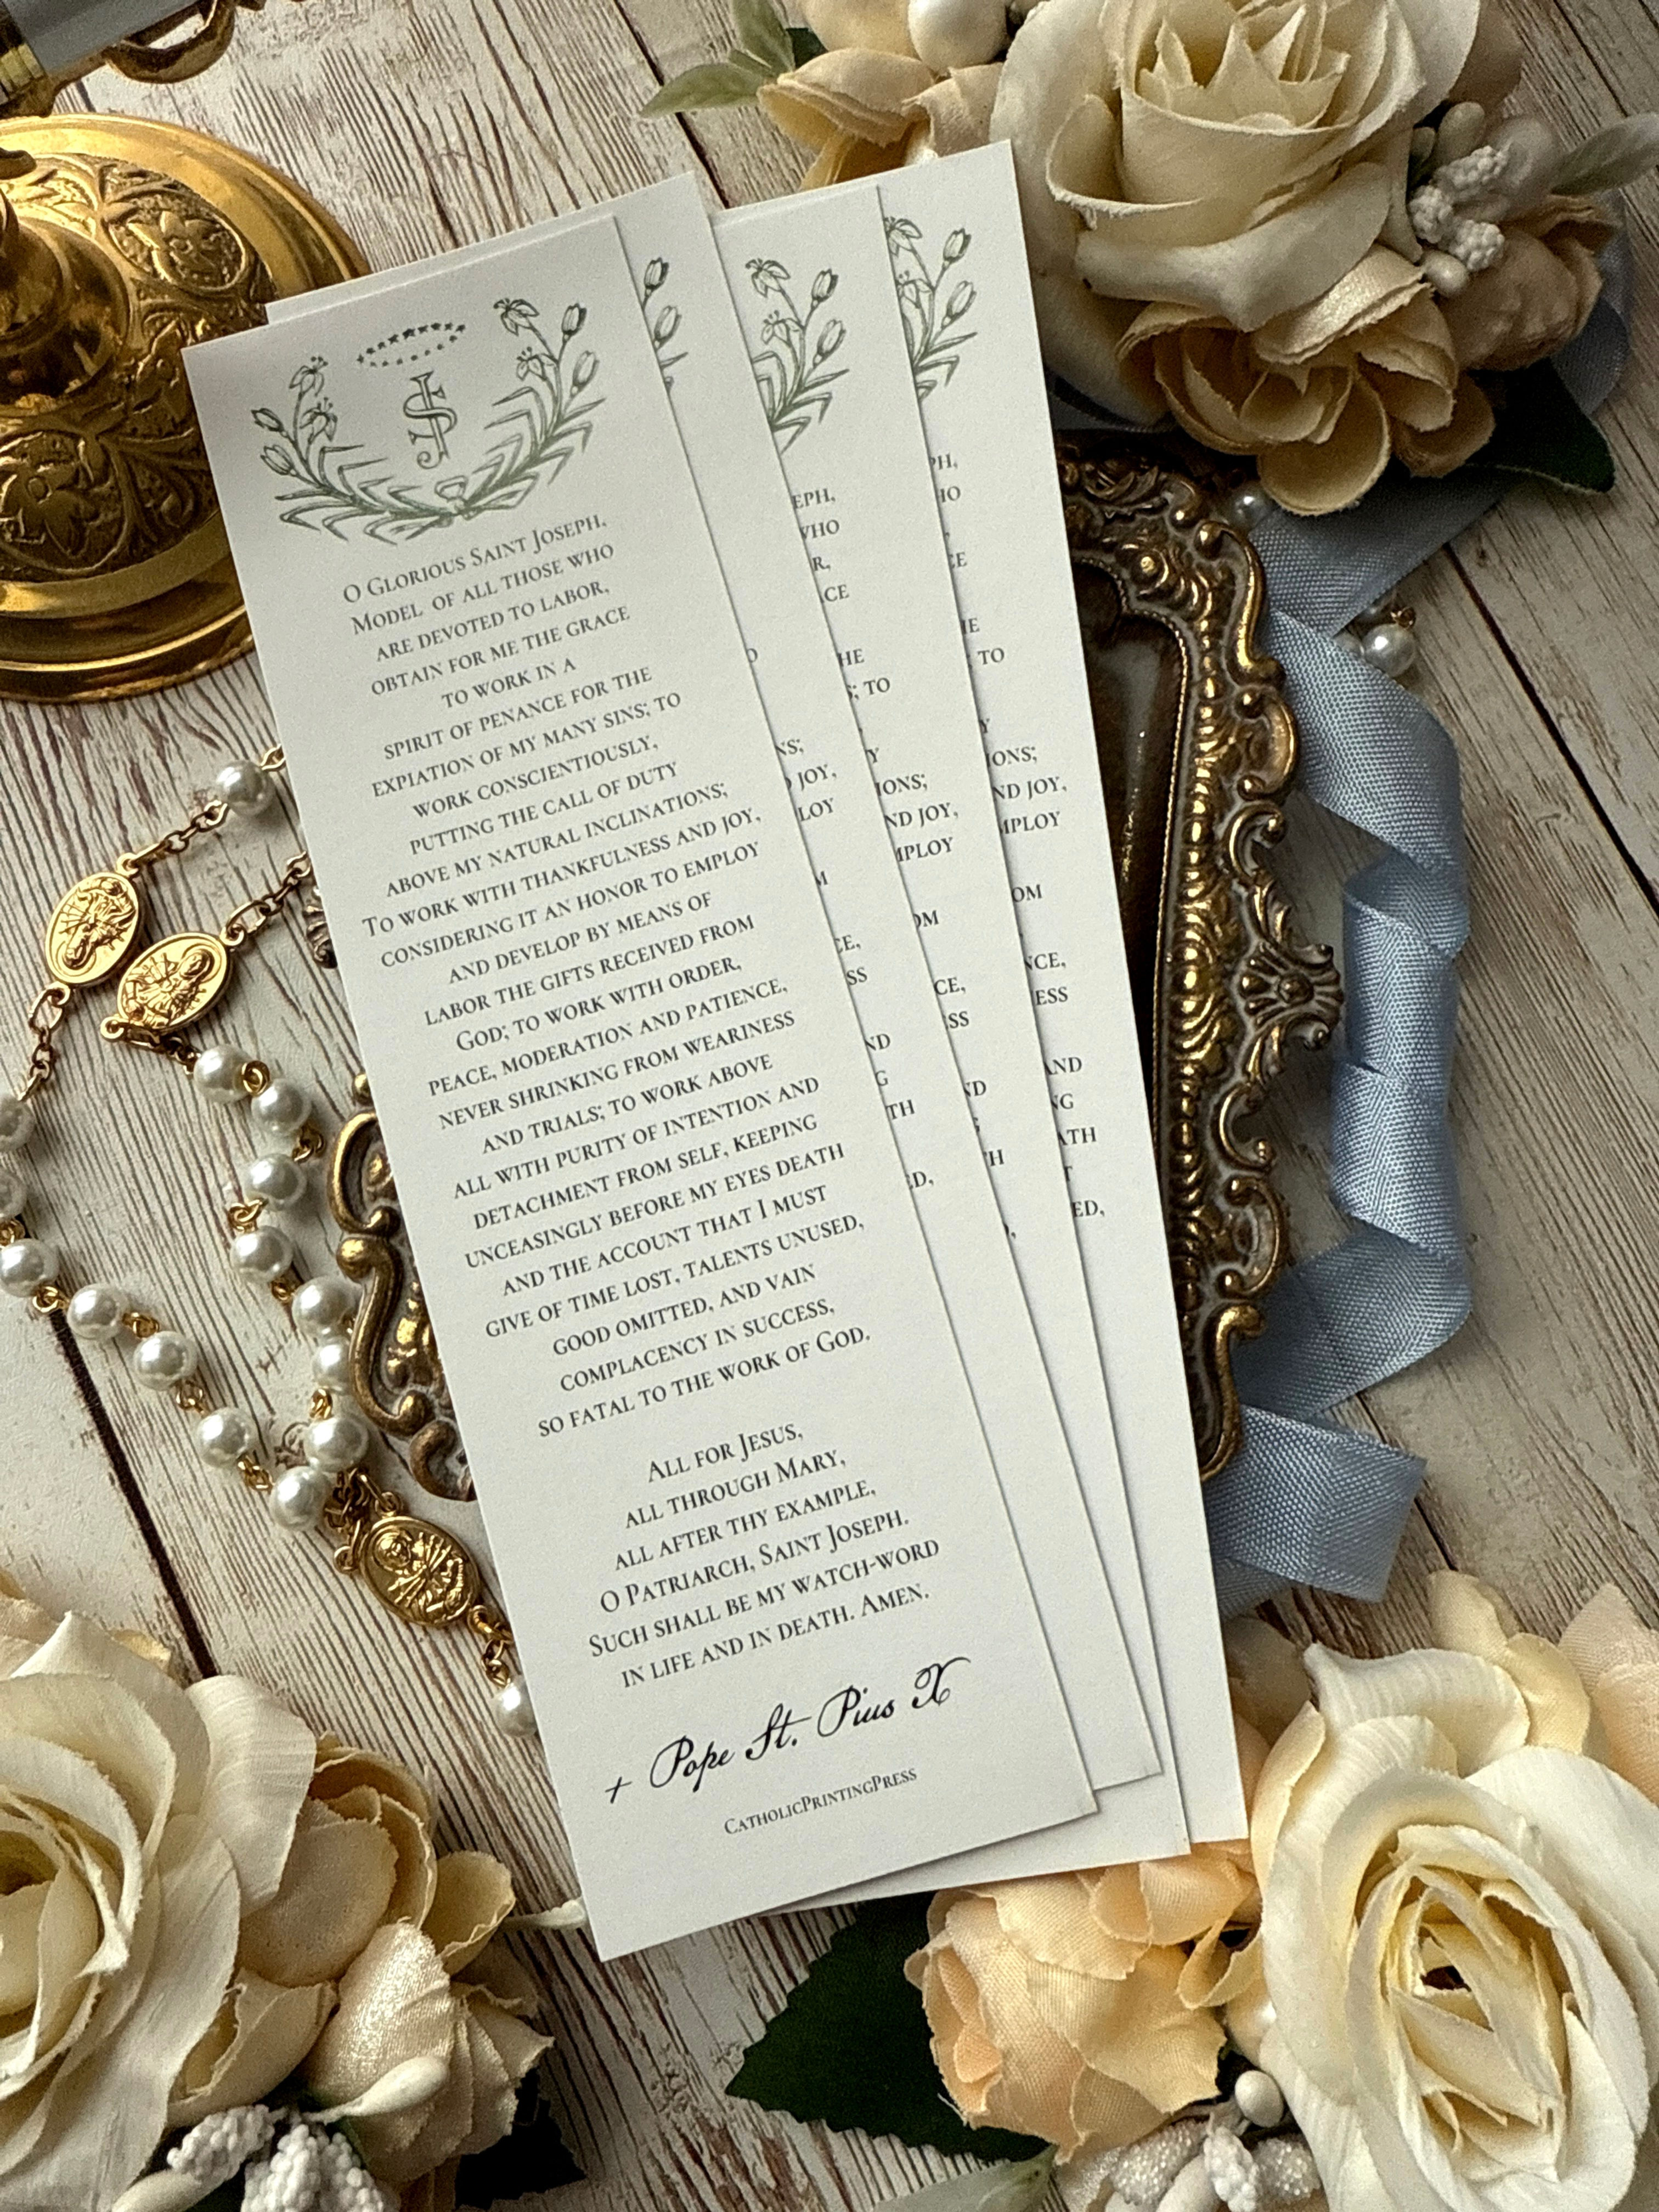 SJ
O Glorious Saint Joseph,
Model of all those who
are devoted to labor,
obtain for me the grace
to work in a
spirit of penance for the
expiation of my many sins; to
work conscientiously,
putting the call of duty
above my natural inclinations;
To work with thankfulness and joy,
considering it an honor to employ
and develop by means of
labor the gifts received from
God; to work with order,
peace, moderation and patience,
never shrinking from weariness
and trials; to work above
all with purity of intention and
detachment from self, keeping
unceasingly before my eyes death
and the account that I must
give of time lost, talents unused,
good omitted, and vain
complacency in success,
so fatal to the work of God.
All for Jesus,
all through Mary,
all after thy example,
O Patriarch, Saint Joseph.
Such shall be my watch-word
in life and in death. Amen.
+ Pope St. Pius X
CatholicPrintingPress